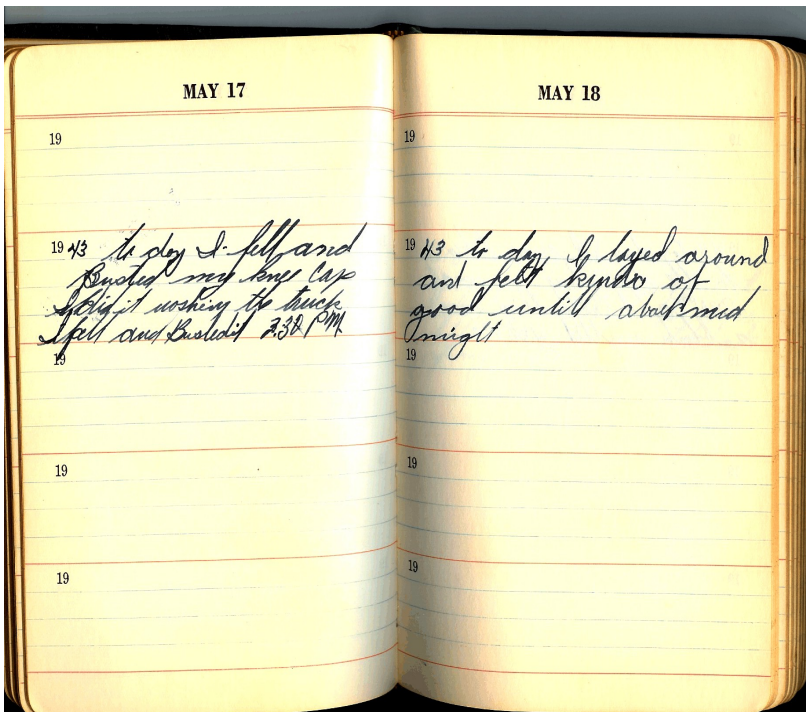 MAY 17
19
19 43 to day I fell and
Busted my knee Cap
I did it washing the truck
I fell and Busted it 2.30 PM
19
19
19
MAY 18
19
19 43 to day I layed around
and felt kinda of
good until about mid
night
19
19
19